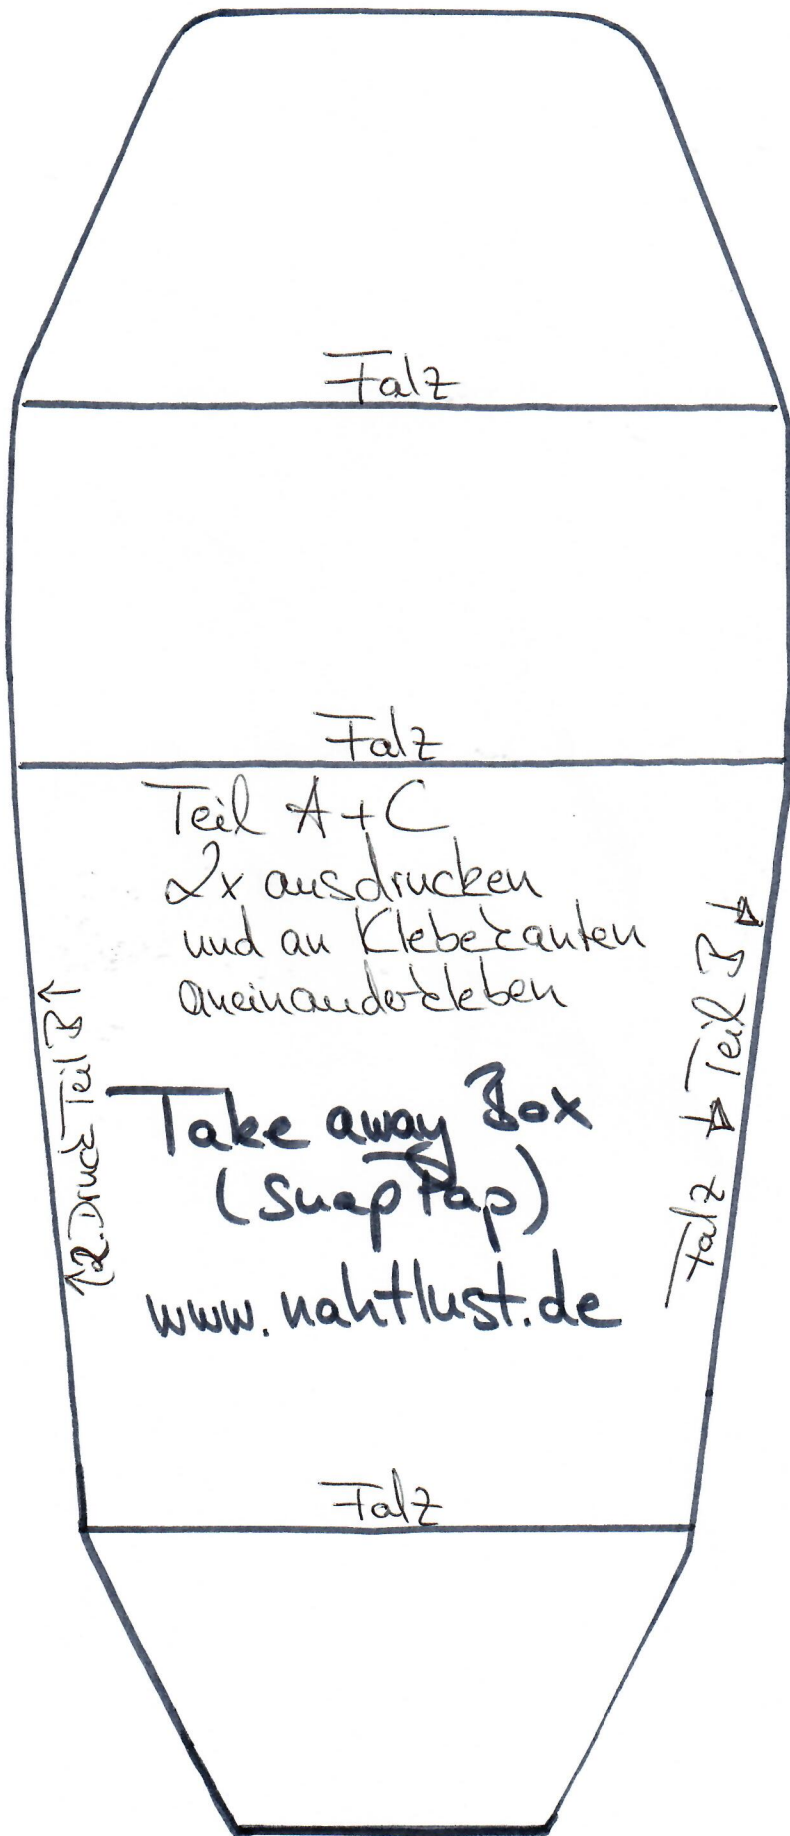 Falz
Falz
Teil A+C
2x ausdrucken
und an Klebekanten
aneinanderkleben
↑2. Druck Teil B↑
Falz ↓ Teil B ↓
Take away Box
(SnapPap)
www.nahtlust.de
Falz